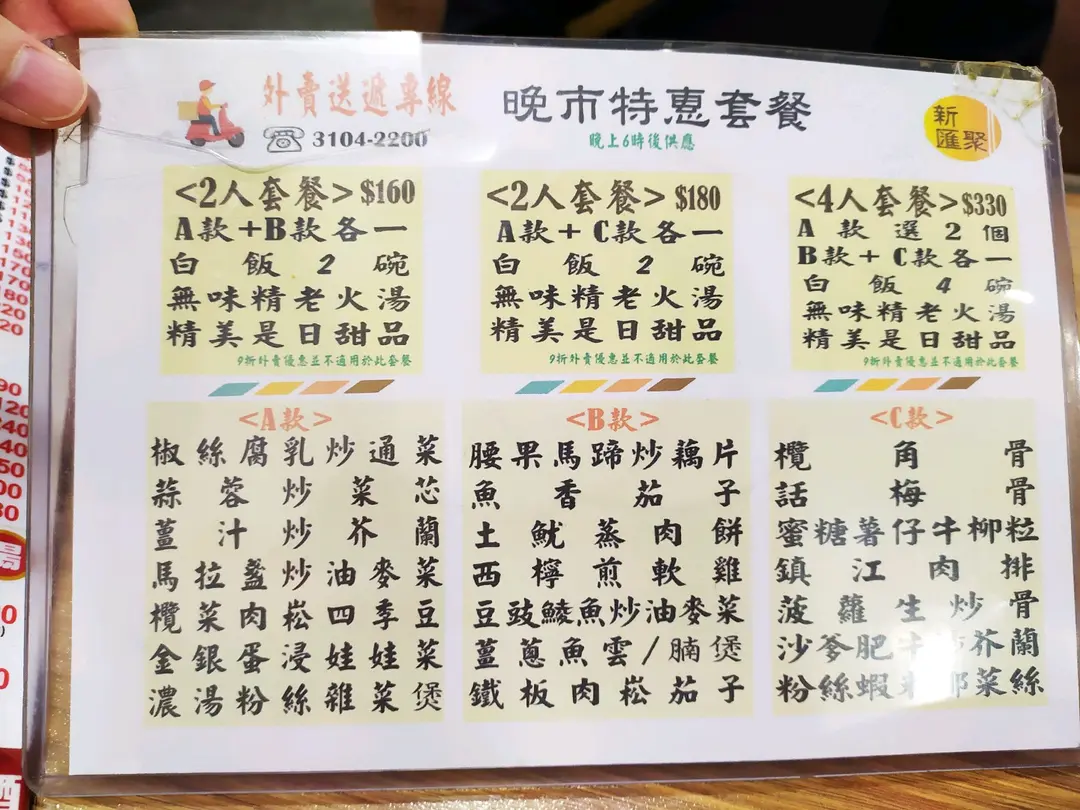 外賣送遞專線
3104-2200
晚市特惠套餐
晚上6時後供應
新匯聚
<2人套餐>$160
A款+B款各一
白飯2碗
無味精老火湯
精美是日甜品
9折外賣優惠並不適用於此套餐
<2人套餐>$180
A款+C款各一
白飯2碗
無味精老火湯
精美是日甜品
9折外賣優惠並不適用於此套餐
<4人套餐>$330
A款選2個
B款+C款各一
白飯4碗
無味精老火湯
精美是日甜品
9折外賣優惠並不適用於此套餐
<A款>
椒絲腐乳炒通菜
蒜蓉炒菜芯
薑汁炒芥蘭
馬拉盞炒油麥菜
欖菜肉崧四季豆
金銀蛋浸娃娃菜
濃湯粉絲雜菜煲
<B款>
腰果馬蹄炒藕片
魚香茄子
土魷蒸肉餅
西檸煎軟雞
豆豉鯪魚炒油麥菜
薑蔥魚雲/腩煲
鐵板肉崧茄子
<C款>
欖角骨
話梅骨
蜜糖薯仔牛柳粒
鎮江肉排
菠蘿生炒骨
沙爹肥牛芥蘭
粉絲蝦米椰菜絲